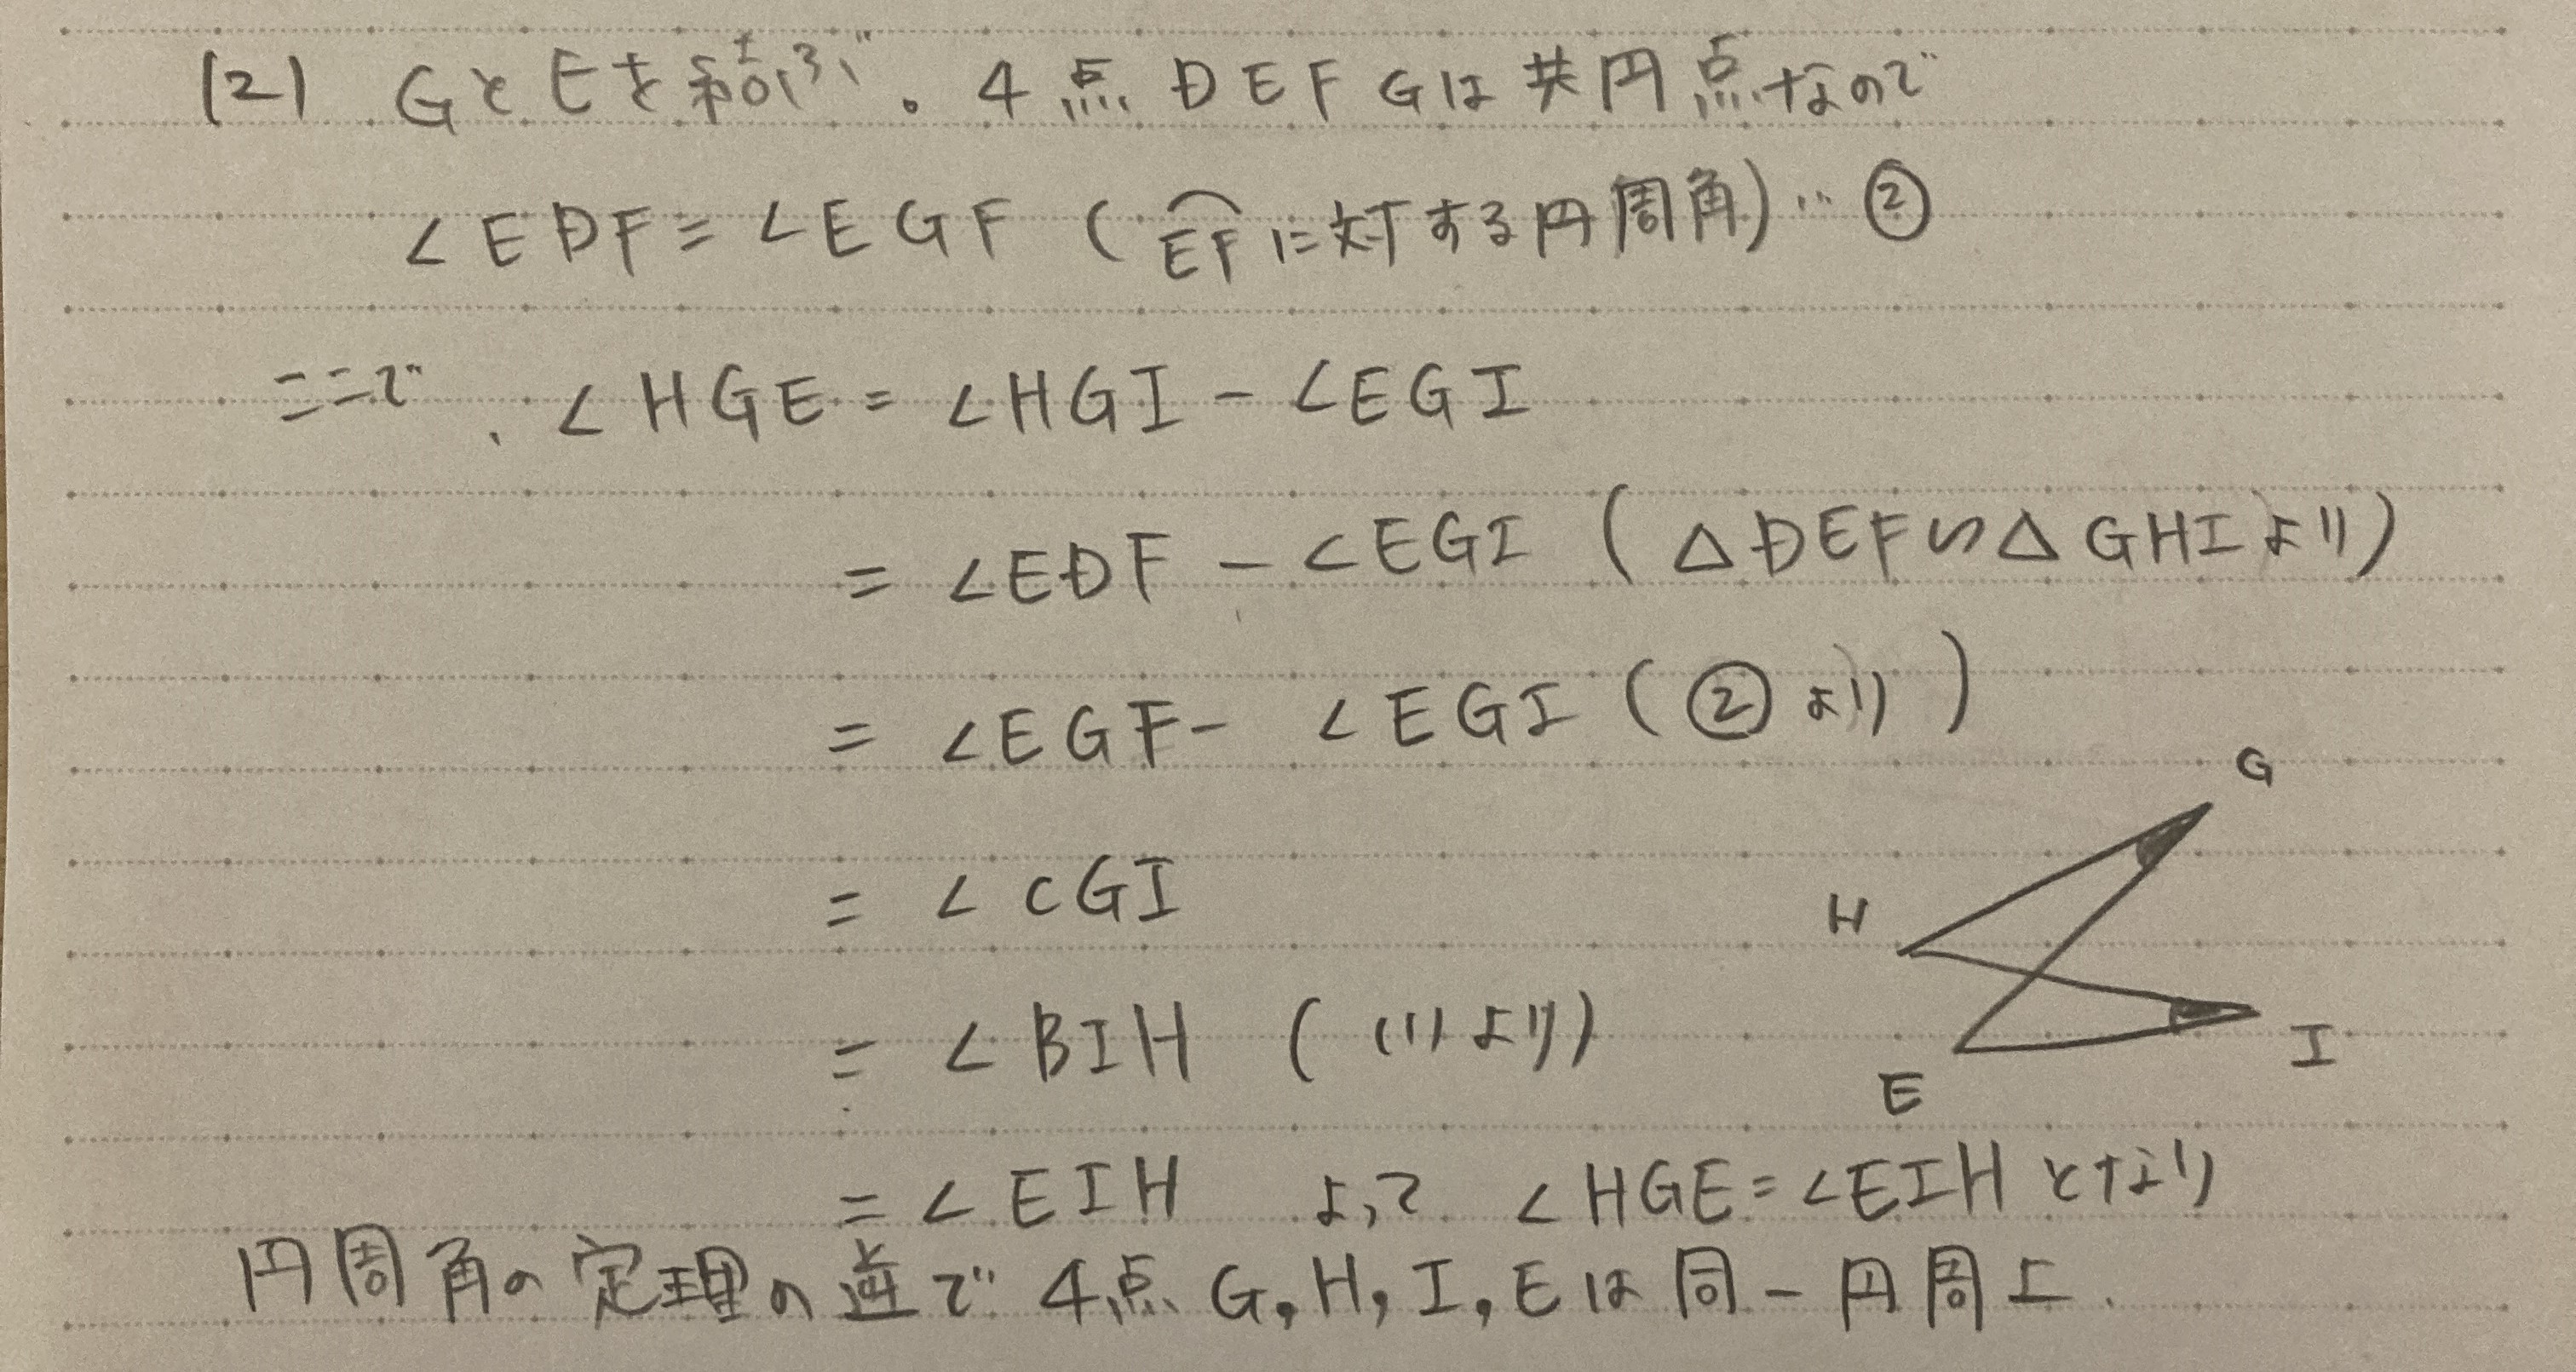 (2) GとEを結ぶ。4点DEFGは共円点なので
∠EDF=∠EGF (⌒EFに対する円周角)…②
ここで、∠HGE=∠HGI-∠EGI
=∠EDF-∠EGI (△DEF∽△GHIより)
=∠EGF-∠EGI (②より)
G
=∠CGI
H
=∠BIH ((1)より)
I
E
=∠EIH よって ∠HGE=∠EIHとなり
円周角の定理の逆で4点G,H,I,Eは同一円周上.